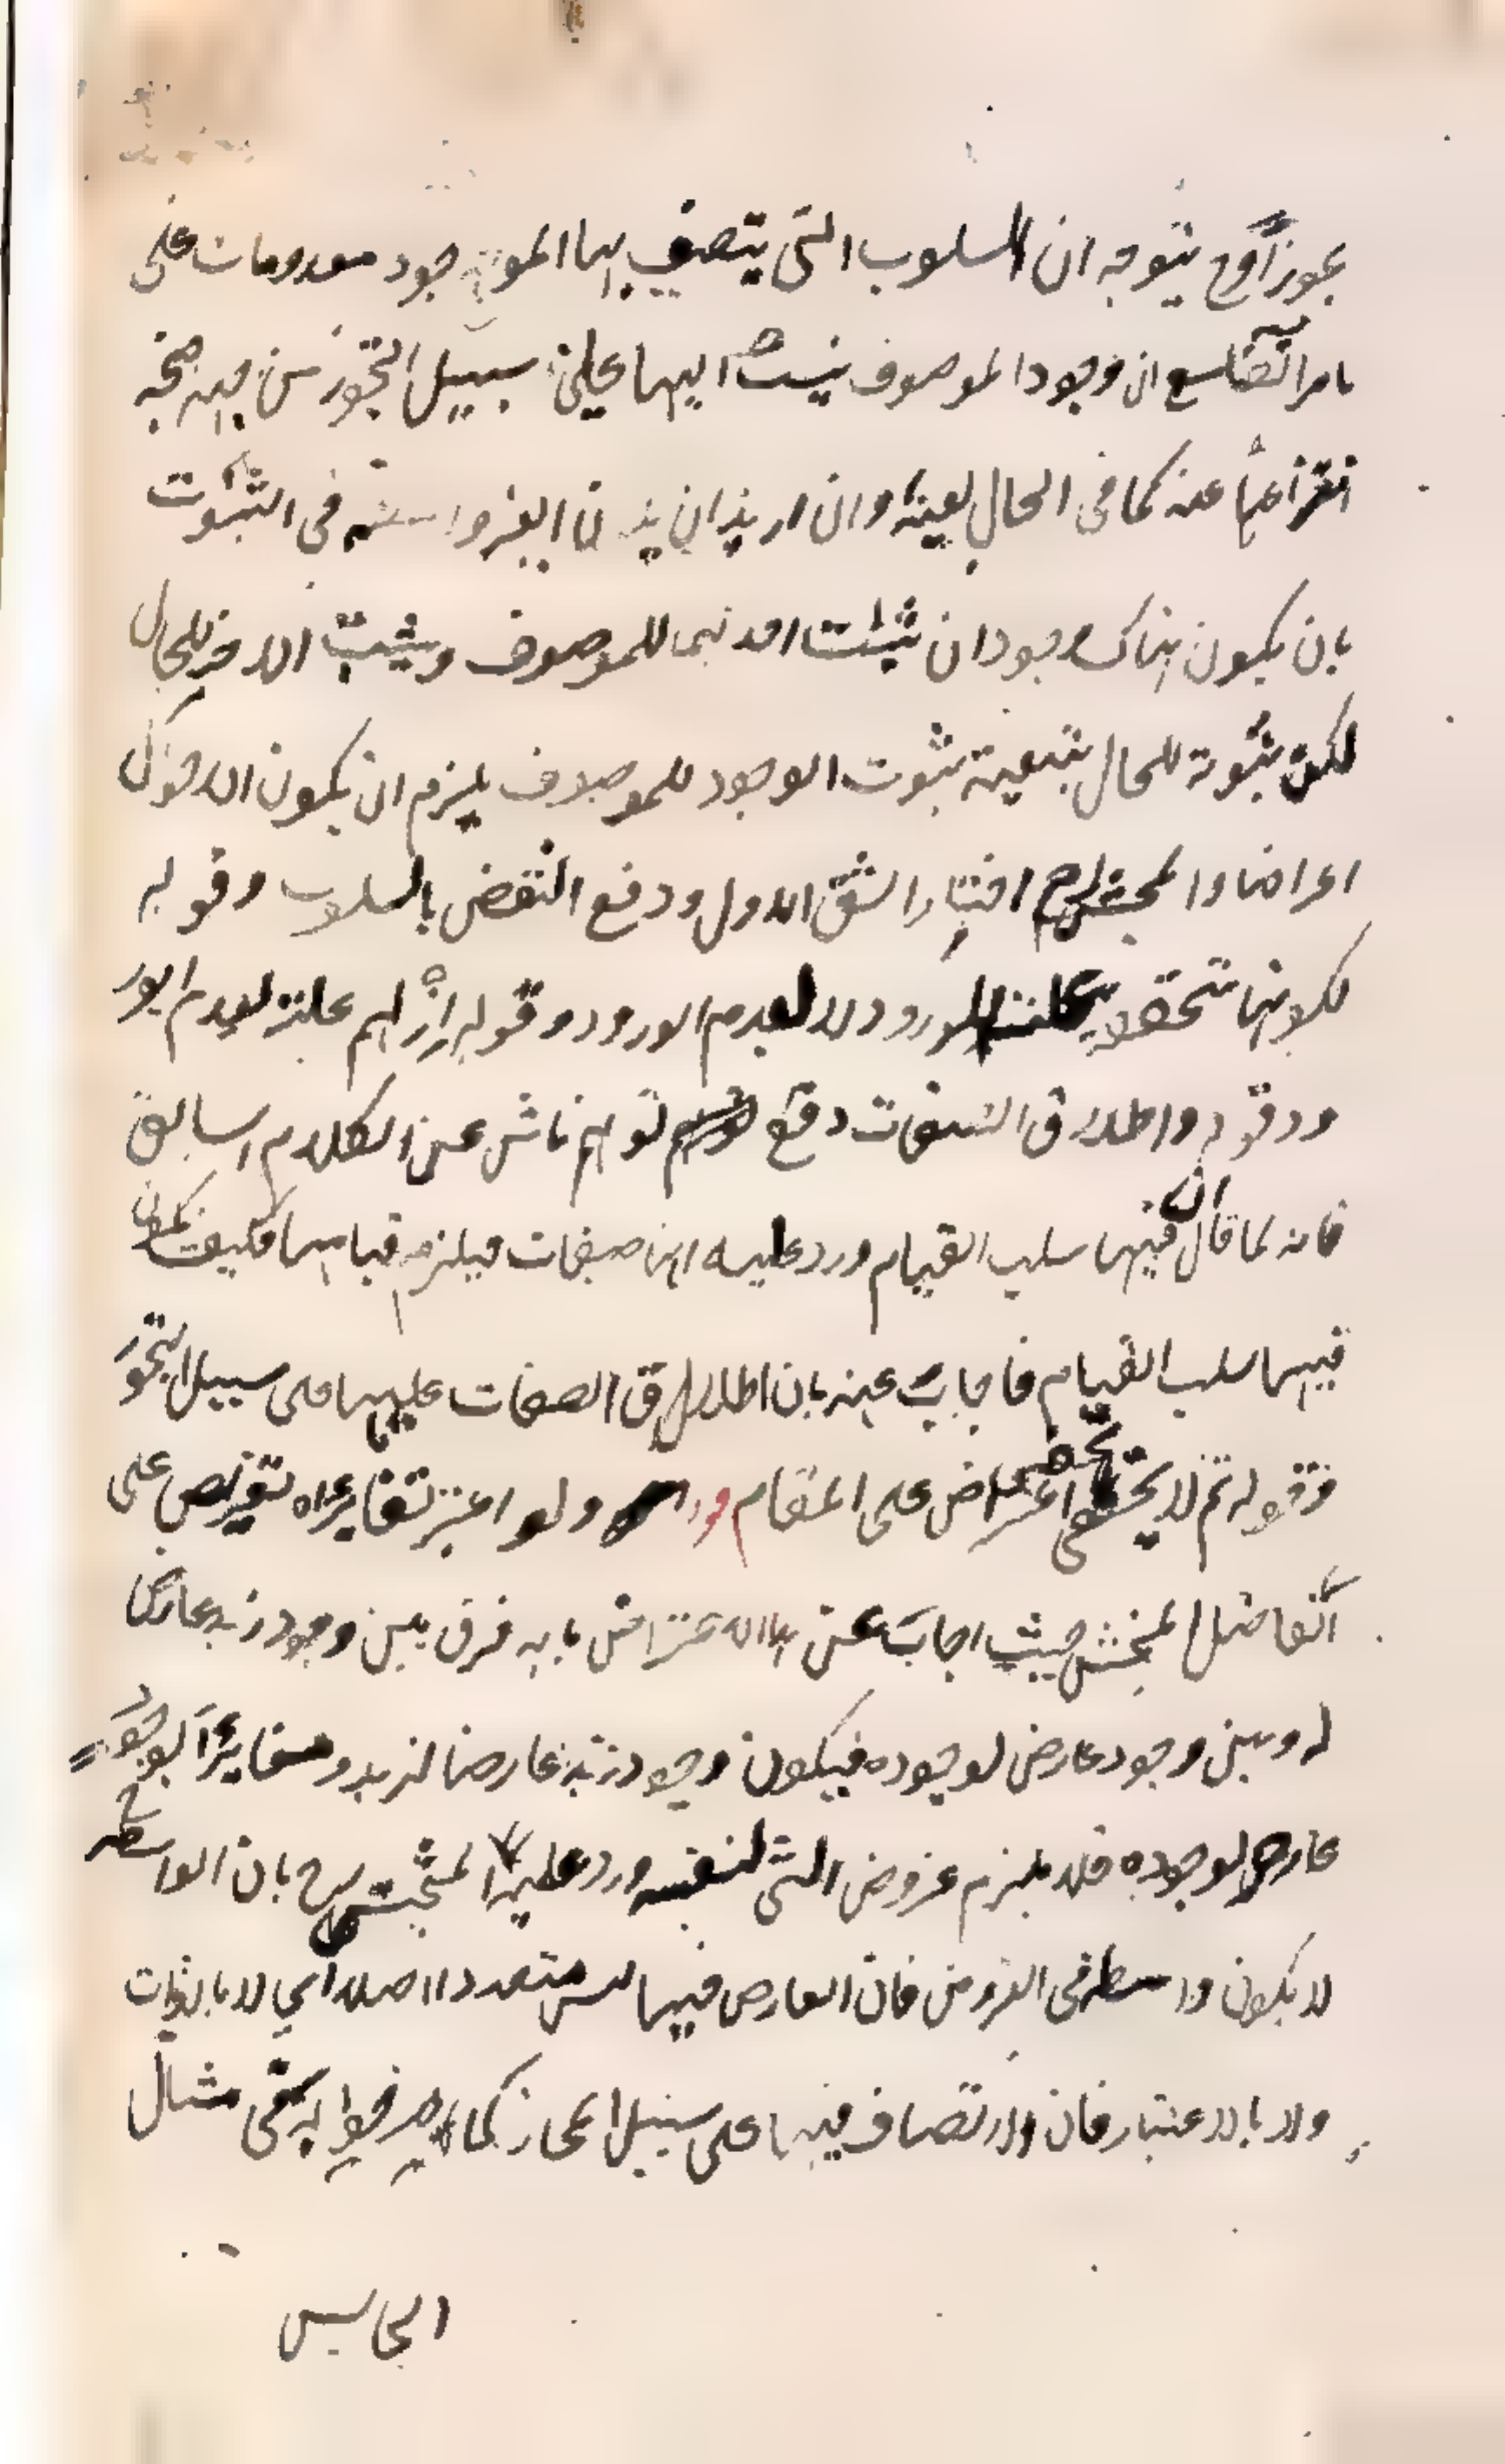 يتوجه ان السلوب التى يتصف بها الموجود معدومات على
مع ان وجود الموصوف ينسب اليها على سبيل التجوز من جهة صحة
انتزاعها عنه كما فى الحال بعينه وان اريد ان فى الثبوت
بان يكون هناك وجودان يثبت احدهما للموصوف ويثبت الاخر للحال
لكن ثبوته للحال بتبعية ثبوت الوجود للموصوف يلزم ان يكون الاحوال
اعراضا والمحشى اختار الشق الاول ودفع النقض بالسلوب وقوله
لكونها علة للورود لا لعدم الورود وقوله اذ لم علة لعدم الور
ود وقوله واطلاق الصفات دفع توهم ناش عن الكلام السابق
فانه لما قال ان فيها سلب القيام ورد عليه انها صفات فيلزم قيامها فكيف يكون
فيها سلب القيام فاجاب عنه بان اطلاق الصفات عليها على سبيل التجوز
فقوله ثم لا يخفى اعتراض على المقام ولو اعتبر تغاير تعريض على
الفاضل المحشى حيث اجاب عن الاعتراض بانه فرق بين وجود زيد عارض
له وبين وجود عارض لوجوده فيكون وجود زيد عارضا لزيد ومغايرا لوجود
عارض لوجوده فلا يلزم عروض الشئ لنفسه ورد عليه المحشى بان الواسطة
لا يكون واسطة فى العروض فان العارض فيها ليس متعددا اصلا اى لا بالذات
ولا بالاعتبار فان الاتصاف فيها على سبيل المجاز كما صرحوا به فى مثال
الجالس